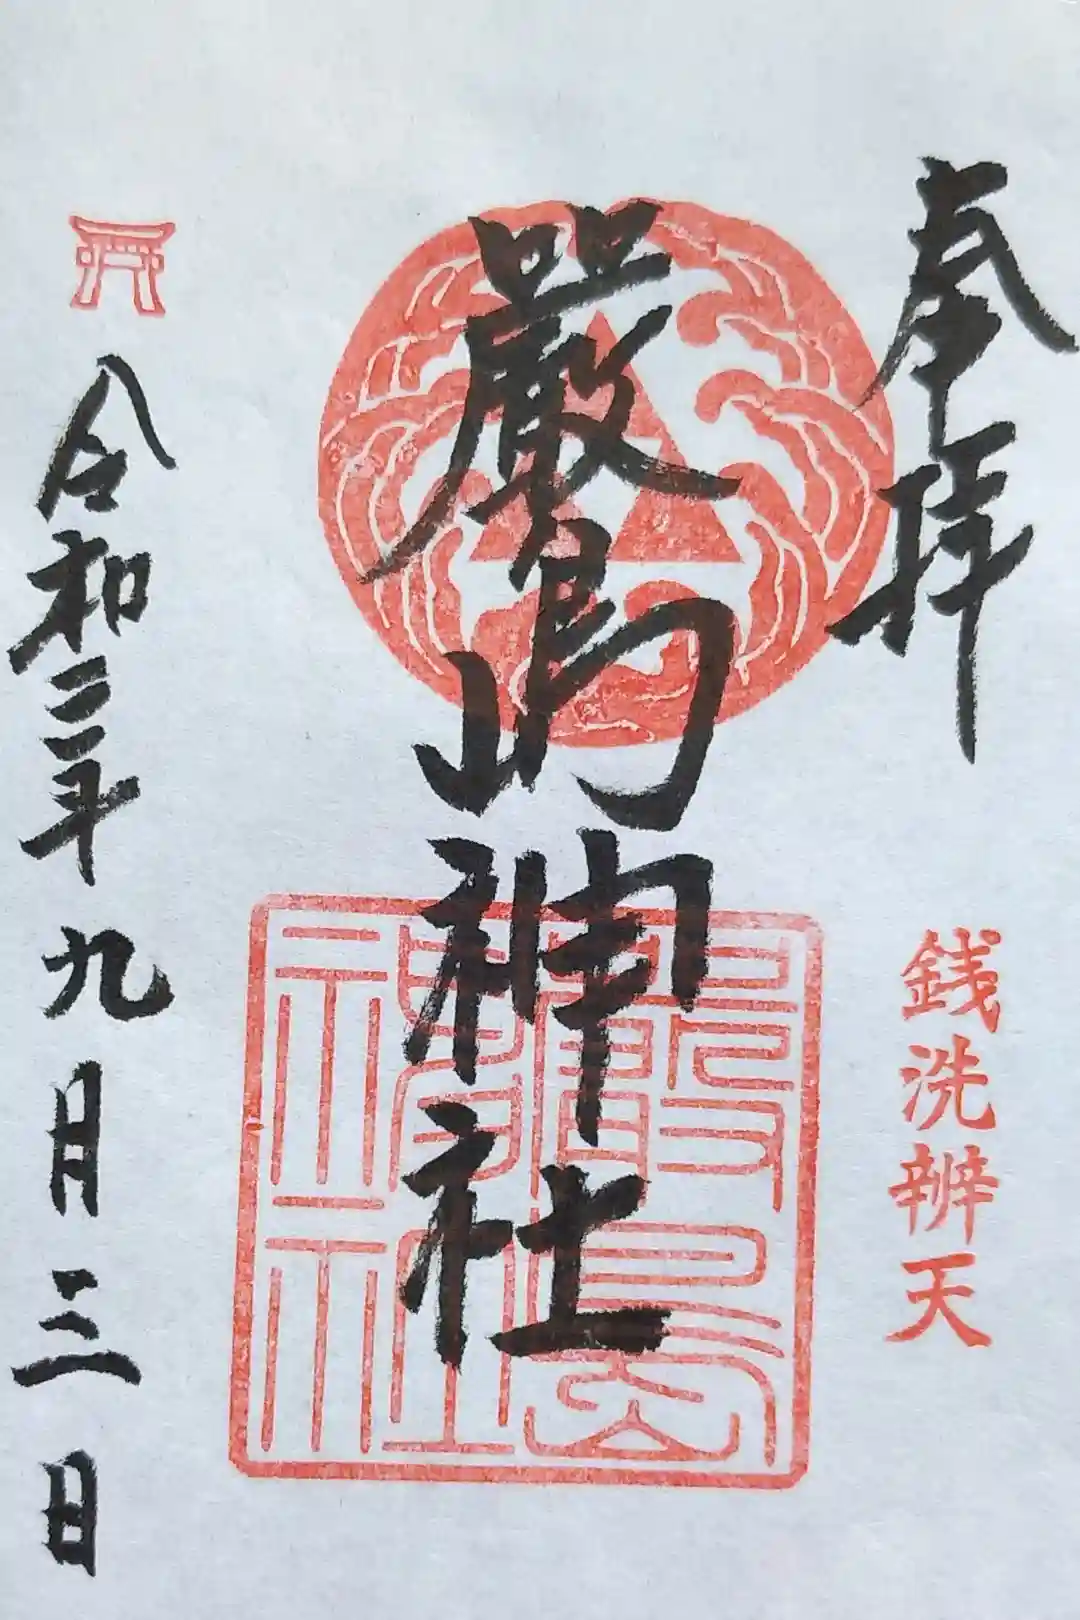 奉拝
銭洗辨天
嚴島神社
嚴島
神社
令和二年九月三日